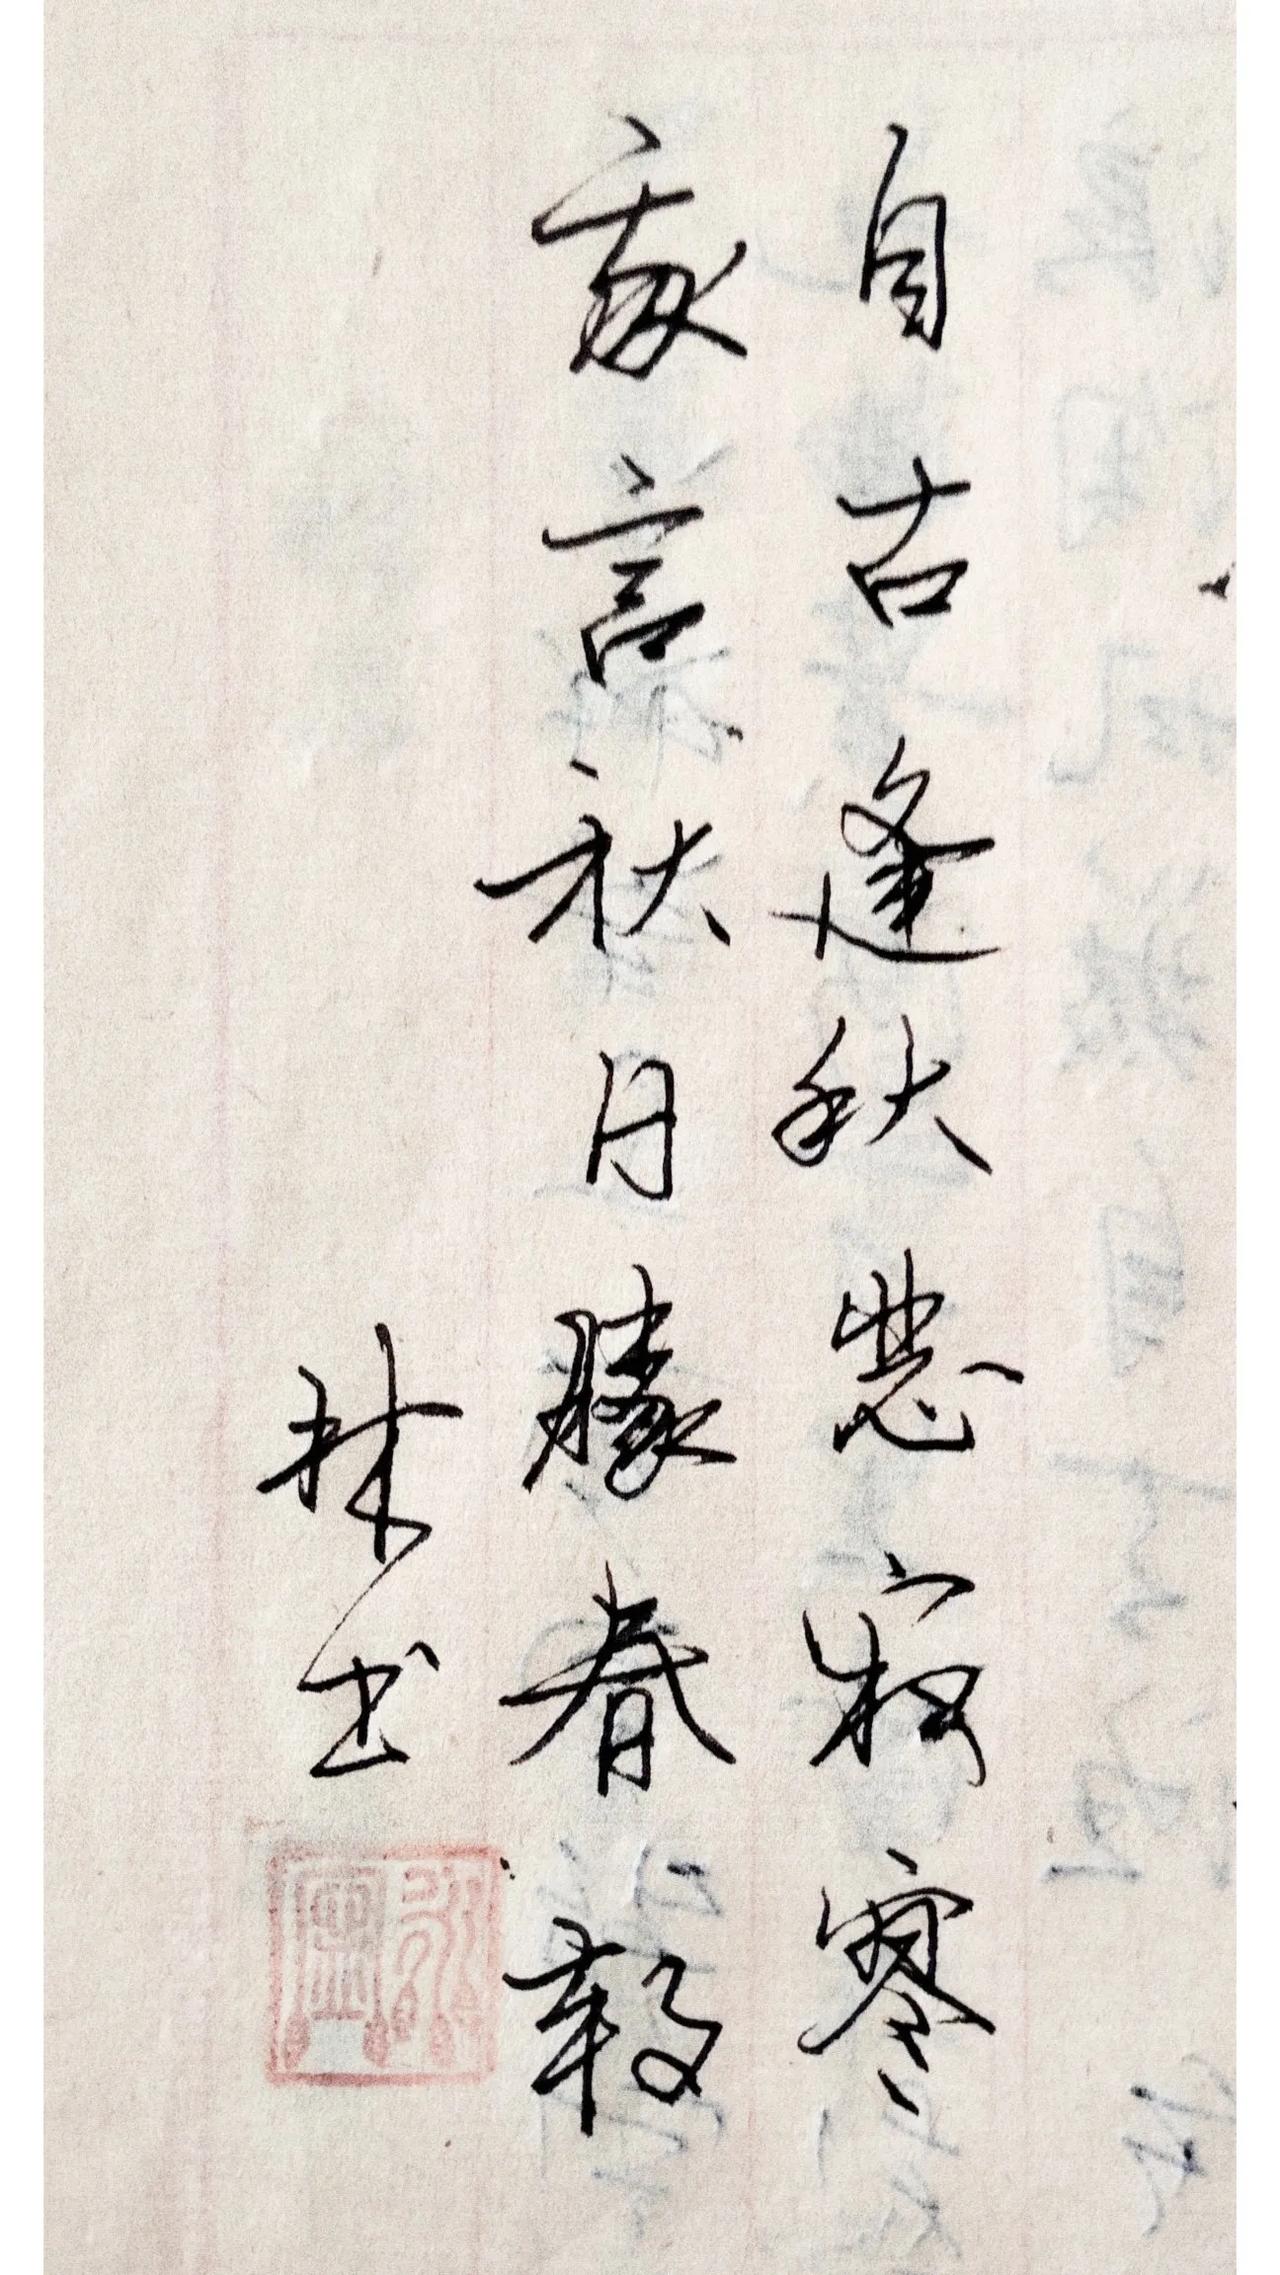 自古逢秋悲寂寥
我言秋日勝春朝
林书